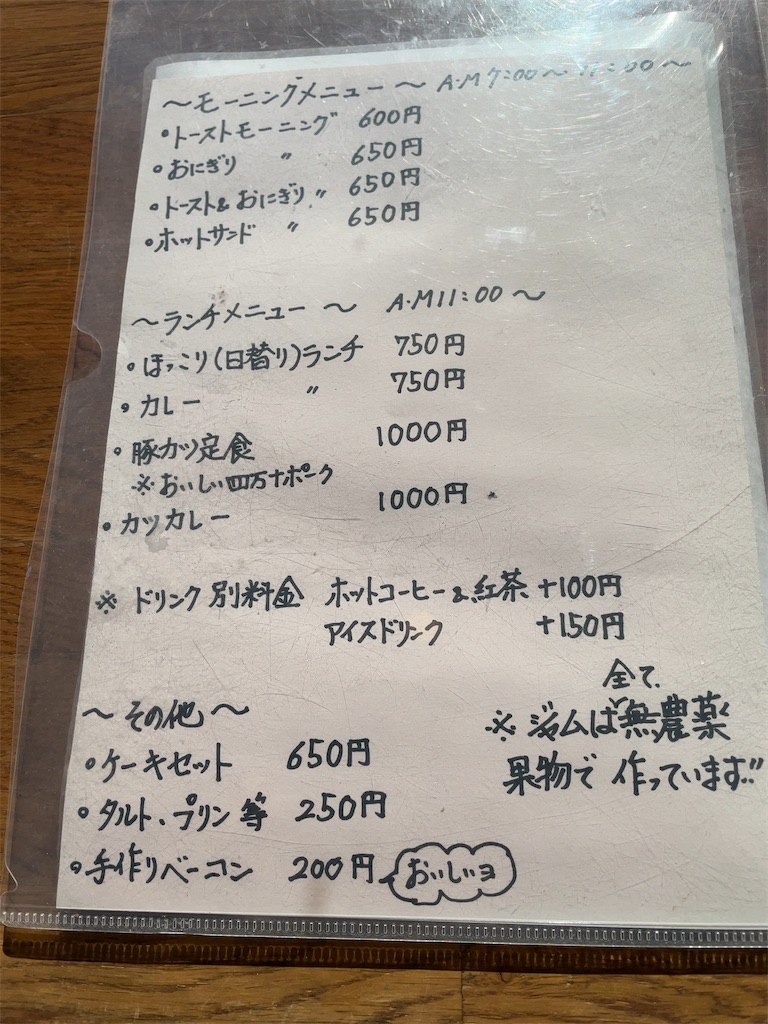 ～モーニングメニュー～ A・M 7:00～11:00～
・トーストモーニング 600円
・おにぎり 〃 650円
・トースト&おにぎり 〃 650円
・ホットサンド 〃 650円
～ランチメニュー～ A・M 11:00～
・ほっこり(日替り)ランチ 750円
・カレー 〃 750円
・豚カツ定食 1000円
※おいしい四万十ポーク
・カツカレー 1000円
※ドリンク別料金 ホットコーヒー&紅茶 +100円
アイスドリンク +150円
～その他～
・ケーキセット 650円
・タルト、プリン等 250円
・手作りベーコン 200円 おいしいヨ
全て、
※ジャムは無農薬
果物で作っています!!